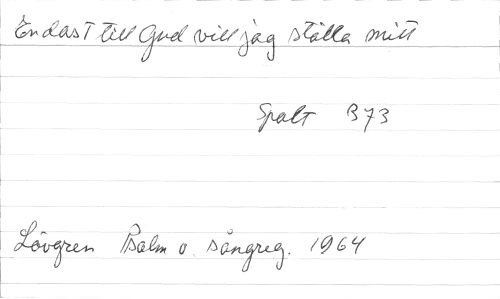 Endast till Gud vill jag ställa mitt
Spalt B73
Lövgren Psalm o. sångreg. 1964